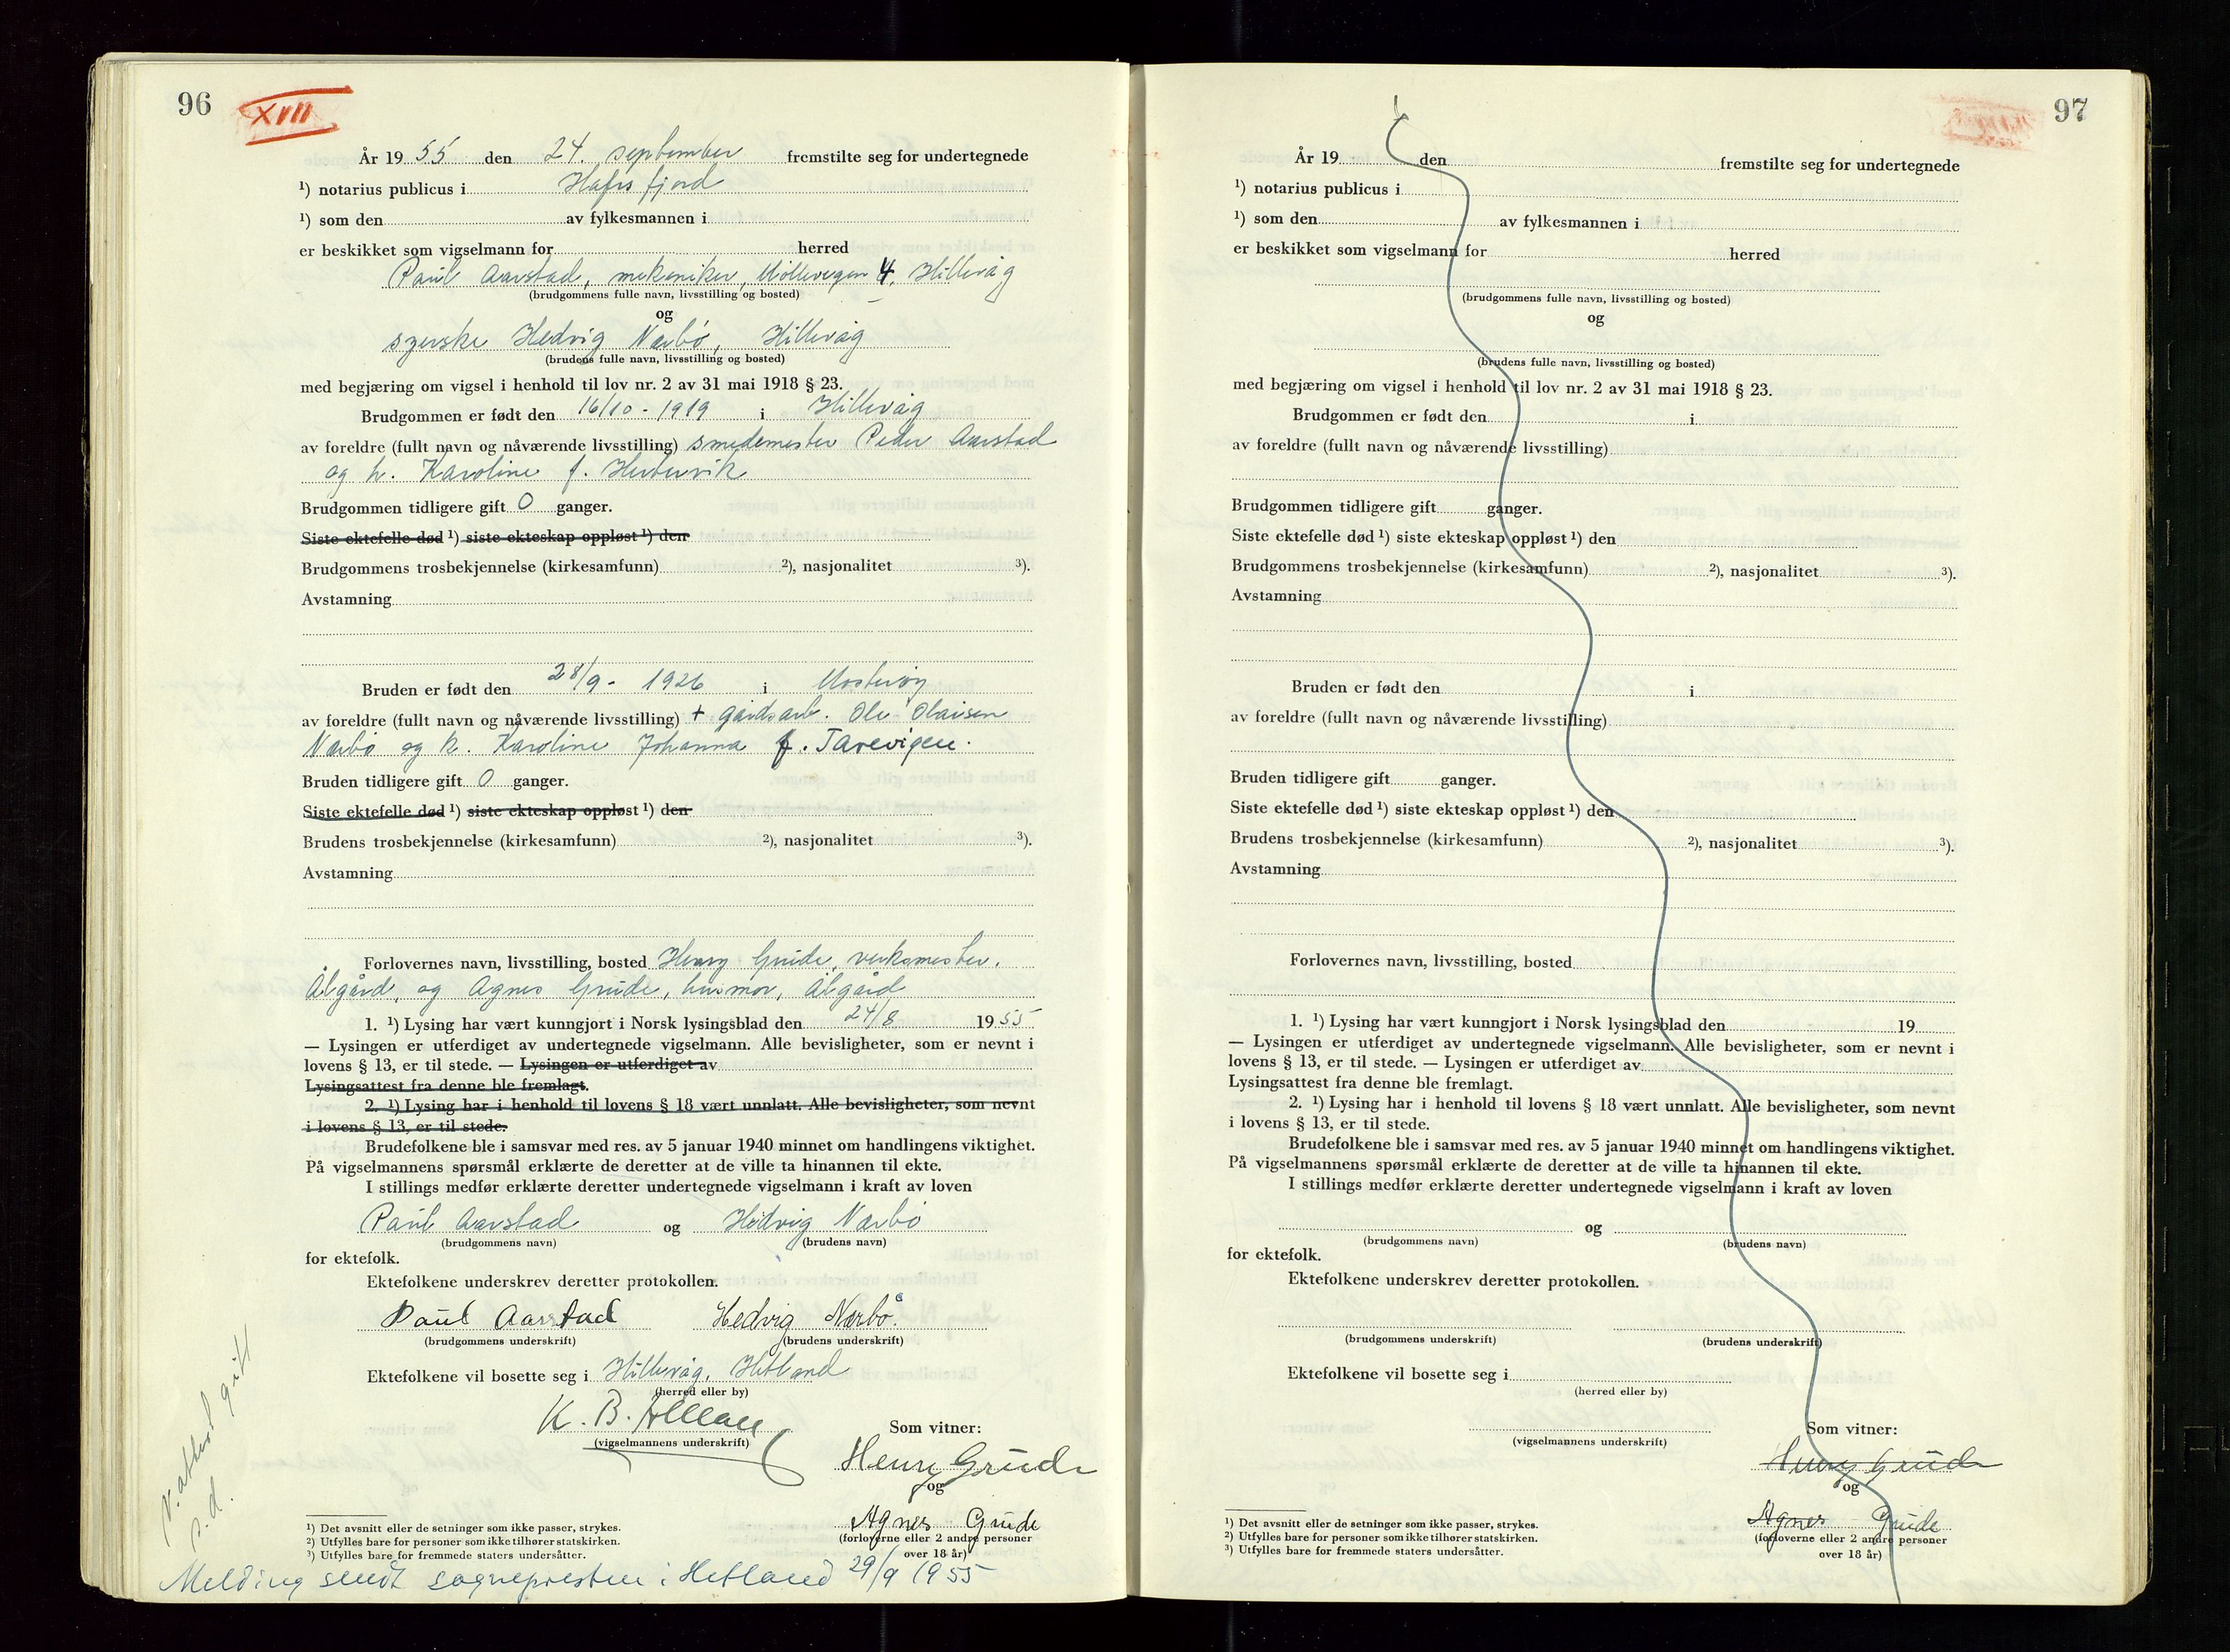 96
XVII
År 1955 den 24. september fremstilte seg for undertegnede
¹) notarius publicus i Hafrsfjord
¹) som den av fylkesmannen i
er beskikket som vigselmann for herred
Paul Aarstad, mekaniker, Møllevegen 4, Hillevåg
(brudgommens fulle navn, livsstilling og bosted)
og
syerske Hedvig Nærbø, Hillevåg
(brudens fulle navn, livsstilling og bosted)
med begjæring om vigsel i henhold til lov nr. 2 av 31 mai 1918 § 23.
Brudgommen er født den 16/10 - 1919 i Hillevåg
av foreldre (fullt navn og nåværende livsstilling) smedemester Peder Aarstad
og h. Karoline f. Hertervik
Brudgommen tidligere gift 0 ganger.
Siste ektefelle død ¹) siste ekteskap oppløst ¹) den
Brudgommens trosbekjennelse (kirkesamfunn) ²), nasjonalitet ³).
Avstamning
Bruden er født den 28/9 - 1926 i Mosterøy
av foreldre (fullt navn og nåværende livsstilling) + gårdsarb. Ole Olaisen
Nærbø og h. Karoline Johanna f. Tarevigen.
Bruden tidligere gift 0 ganger.
Siste ektefelle død ¹) siste ekteskap oppløst ¹) den
Brudens trosbekjennelse (kirkesamfunn) ²), nasjonalitet ³).
Avstamning
Forlovernes navn, livsstilling, bosted Henry Grude, verksmester,
Ålgård, og Agnes Grude, husmor, Ålgård
1. ¹) Lysing har vært kunngjort i Norsk lysingsblad den 24/8 1955
— Lysingen er utferdiget av undertegnede vigselmann. Alle bevisligheter, som er nevnt i
lovens § 13, er til stede. — Lysingen er utferdiget av
Lysingsattest fra denne ble fremlagt.
2. ¹) Lysing har i henhold til lovens § 18 vært unnlatt. Alle bevisligheter, som nevnt
i lovens § 13, er til stede.
Brudefolkene ble i samsvar med res. av 5 januar 1940 minnet om handlingens viktighet.
På vigselmannens spørsmål erklærte de deretter at de ville ta hinannen til ekte.
I stillings medfør erklærte deretter undertegnede vigselmann i kraft av loven
Paul Aarstad og Hedvig Nærbø
(brudgommens navn) (brudens navn)
for ektefolk.
Ektefolkene underskrev deretter protokollen.
Paul Aarstad Hedvig Nærbø.
(brudgommens underskrift) (brudens underskrift)
Ektefolkene vil bosette seg i Hillevåg, Hetland
(herred eller by)
K. B.
(vigselmannens underskrift)
Som vitner:
Henry Grude
og
Agnes Grude
(forloverne eller 2 andre personer
over 18 år)
¹) Det avsnitt eller de setninger som ikke passer, strykes.
²) Utfylles bare for personer som ikke tilhører statskirken.
³) Utfylles bare for fremmede staters undersåtter.
V. attest gitt
s. d.
Melding sendt sognepresten i Hetland 29/9 1955
97
År 19 den fremstilte seg for undertegnede
¹) notarius publicus i
¹) som den av fylkesmannen i
er beskikket som vigselmann for herred
(brudgommens fulle navn, livsstilling og bosted)
og
(brudens fulle navn, livsstilling og bosted)
med begjæring om vigsel i henhold til lov nr. 2 av 31 mai 1918 § 23.
Brudgommen er født den i
av foreldre (fullt navn og nåværende livsstilling)
Brudgommen tidligere gift ganger.
Siste ektefelle død ¹) siste ekteskap oppløst ¹) den
Brudgommens trosbekjennelse (kirkesamfunn) ²), nasjonalitet ³).
Avstamning
Bruden er født den i
av foreldre (fullt navn og nåværende livsstilling)
Bruden tidligere gift ganger.
Siste ektefelle død ¹) siste ekteskap oppløst ¹) den
Brudens trosbekjennelse (kirkesamfunn) ²), nasjonalitet ³).
Avstamning
Forlovernes navn, livsstilling, bosted
1. ¹) Lysing har vært kunngjort i Norsk lysingsblad den 19
— Lysingen er utferdiget av undertegnede vigselmann. Alle bevisligheter, som er nevnt i
lovens § 13, er til stede. — Lysingen er utferdiget av
Lysingsattest fra denne ble fremlagt.
2. ¹) Lysing har i henhold til lovens § 18 vært unnlatt. Alle bevisligheter, som nevnt
i lovens § 13, er til stede.
Brudefolkene ble i samsvar med res. av 5 januar 1940 minnet om handlingens viktighet.
På vigselmannens spørsmål erklærte de deretter at de ville ta hinannen til ekte.
I stillings medfør erklærte deretter undertegnede vigselmann i kraft av loven
og
(brudgommens navn) (brudens navn)
for ektefolk.
Ektefolkene underskrev deretter protokollen.
(brudgommens underskrift) (brudens underskrift)
Ektefolkene vil bosette seg i
(herred eller by)
(vigselmannens underskrift)
Som vitner:
Henry Grude
og
Agnes Grude
(forloverne eller 2 andre personer
over 18 år)
¹) Det avsnitt eller de setninger som ikke passer, strykes.
²) Utfylles bare for personer som ikke tilhører statskirken.
³) Utfylles bare for fremmede staters undersåtter.